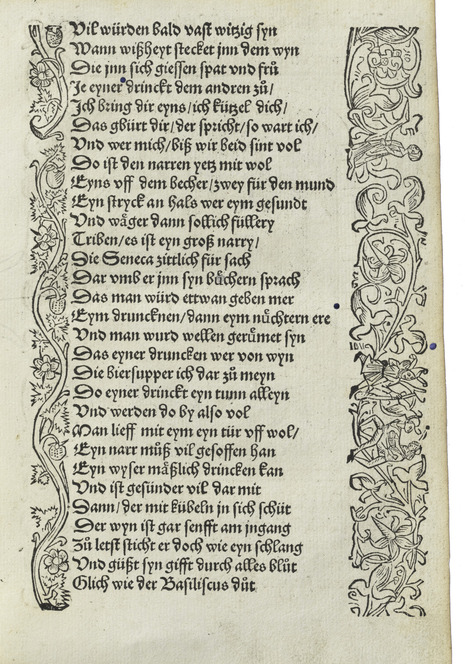 Vil würden bald vast witzig syn
Wann wißheyt stecket jnn dem wyn
Die jnn sich giessen spat vnd frů
Je eyner drinckt dem andren zů/
Jch bring dir eyns/ich kützel dich/
Das gbürt dir/der spricht/so wart ich/
Vnd wer mich/biß wir beid sint vol
Do ist den narren yetz mit wol
Eyns vff dem becher/zwey für den mund
Eyn stryck an hals wer eym gesundt
Vnd wåger dann sollich füllery
Triben/es ist eyn groß narry/
Die Seneca zittlich für sach
Dar vmb er jnn syn bůchern sprach
Das man würd ettwan geben mer
Eym druncknen/dann eym nůchtern ere
Vnd man wurd wellen gerůmet syn
Das eyner druncken wer von wyn
Die biersupper ich dar zů meyn
So eyner drinckt eyn tunn alleyn
Vnd werden do by also vol
Man lieff mit eym eyn tür vff wol/
Eyn narr můß vil gesoffen han
Eyn wyser måßlich drincken kan
Vnd ist gesünder vil dar mit
Dann/der mit kübeln in sich schüt
Der wyn ist gar senfft am jngang
Zů letst sticht er doch wie eyn schlang
Vnd güßt syn gifft durch alles blůt
Glich wie der Basiliscus důt